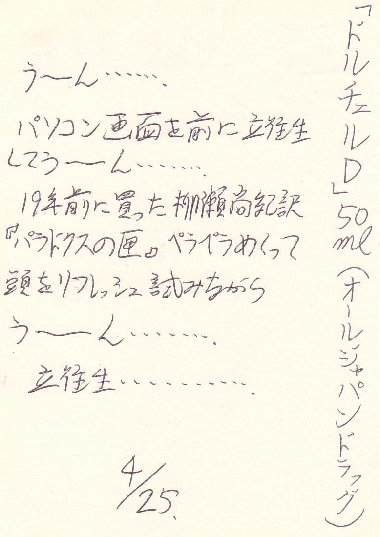 「ドルチェルD」50ml(オールジャパンドラッグ)
うーん……．
パソコン画面を前に立往生
してうーーん………．
19年前に買った柳瀬尚紀訳
『パラドクスの匣』ペラペラめくって
頭をリフレッシュ試みながら
うーーん………．
立往生…………．
4/25.